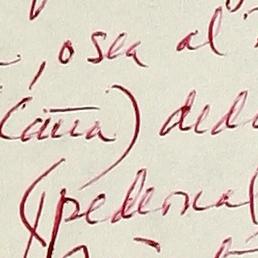 , o sea al
(caña) ded
(pedernal